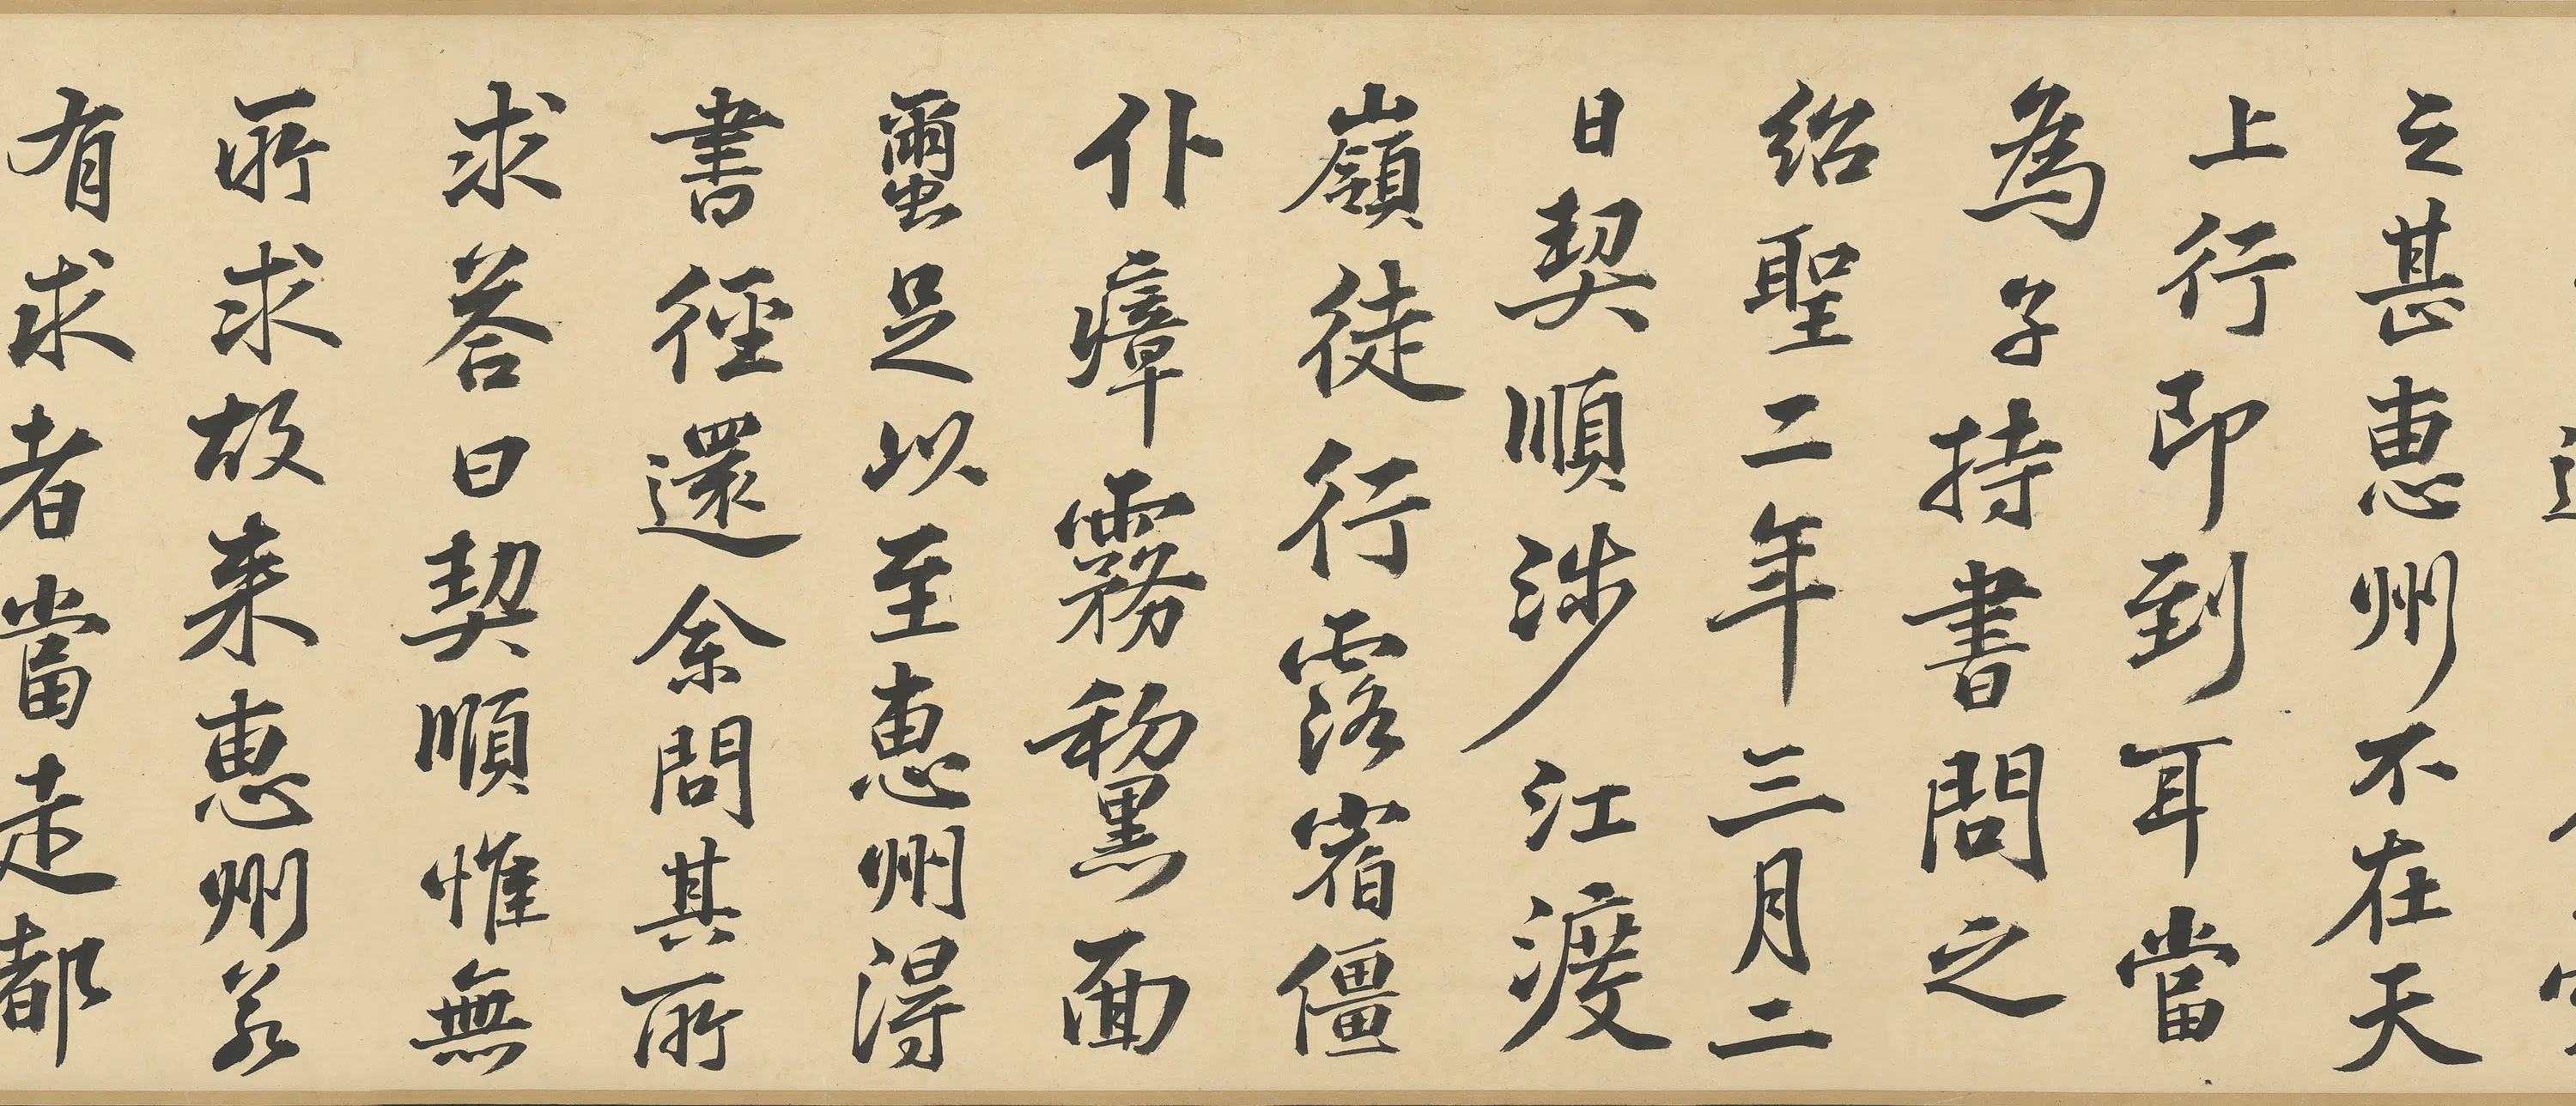 之甚惠州不在天
上行即到耳當
為子持書問之
紹聖二年三月二
日契順涉江渡
嶺徒行露宿僵
仆瘴霧黧面
蠒足以至惠州得
書徑還余問其所
求荅曰契順惟無
所求故来惠州若
有求者當走都